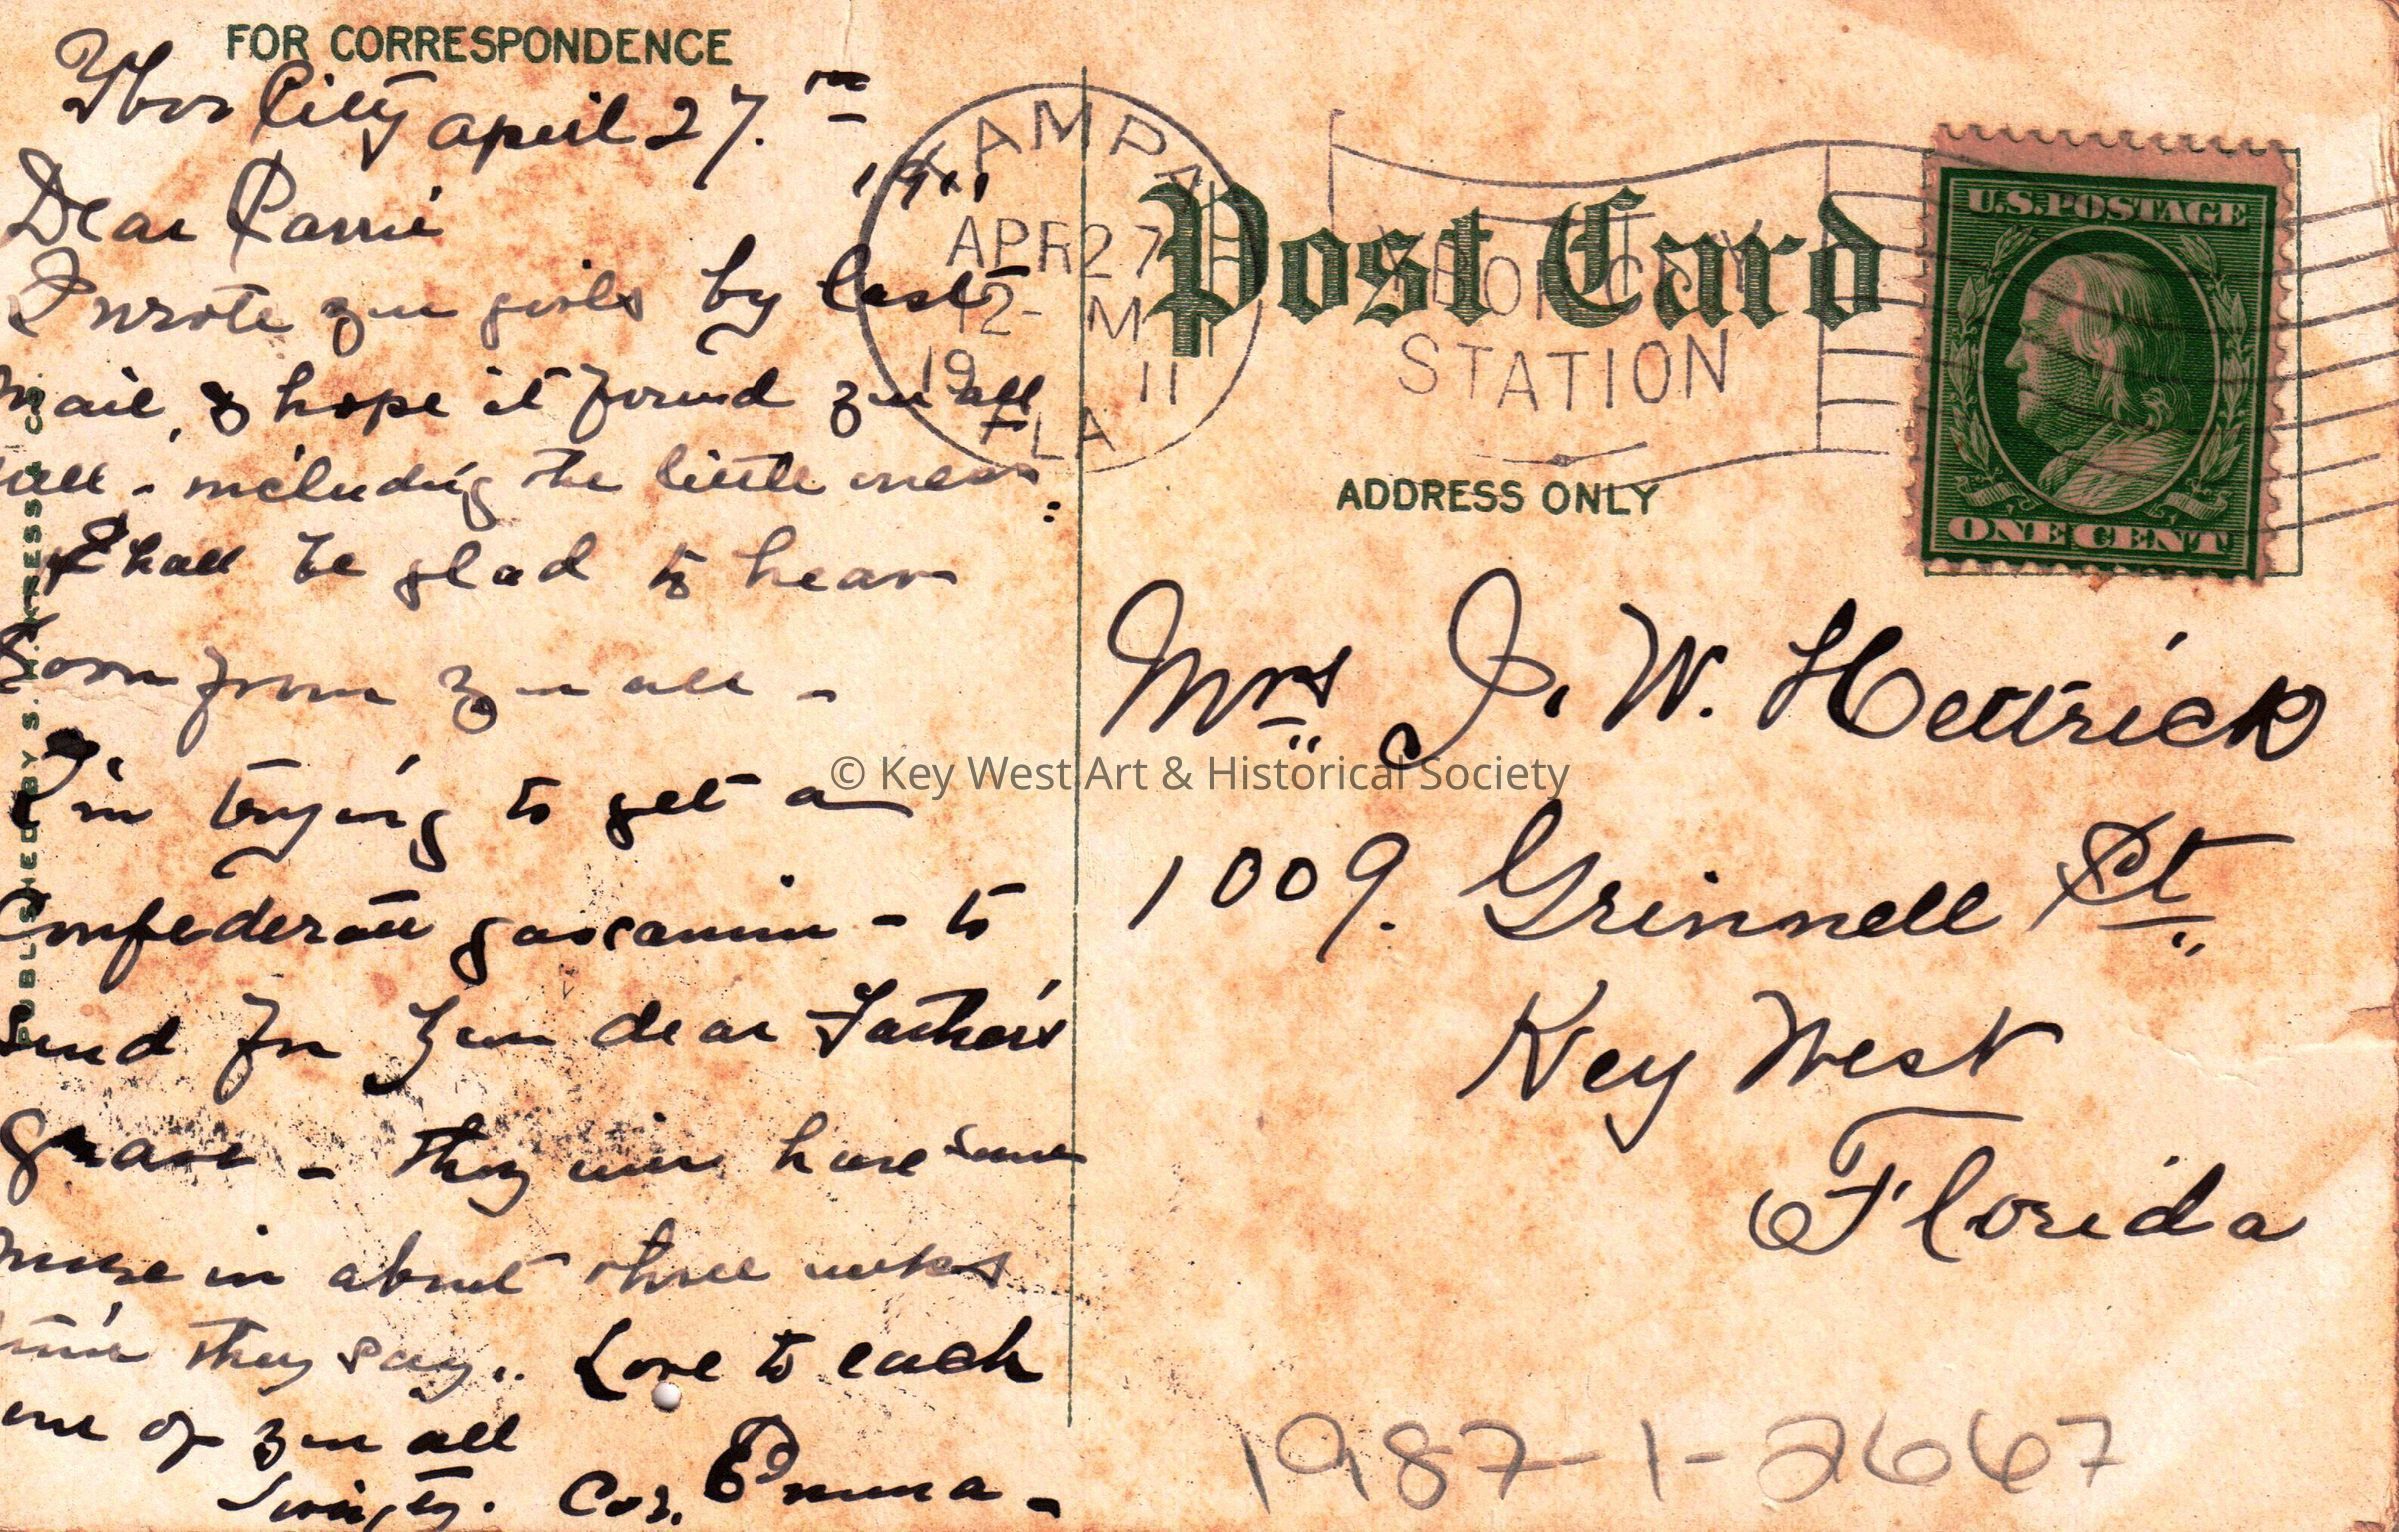 FOR CORRESPONDENCE
Ybor City April 27.
1911
Dear Carrie
I wrote you girls by last
mail, & hope it found you all
well - including the little ones:
Shall be glad to hear
Soon from you all -
I'm trying to get a
Confederate gassamin - to
send for your dear Father's
grave - they will have some
more in about three weeks
time they say.. Love to each
one of you all
Cos. Emma -
PUBLISHED BY S. H. KRESS & CO.
TAMPA
APR 27
12 - M
19 11
FLA
YBOR CITY
STATION
Post Card
ADDRESS ONLY
U.S. POSTAGE
ONE CENT
Mrs J. W. Hettrick
1009. Grinnell St
Key West
Florida
© Key West Art & Historical Society
1987-1-2667